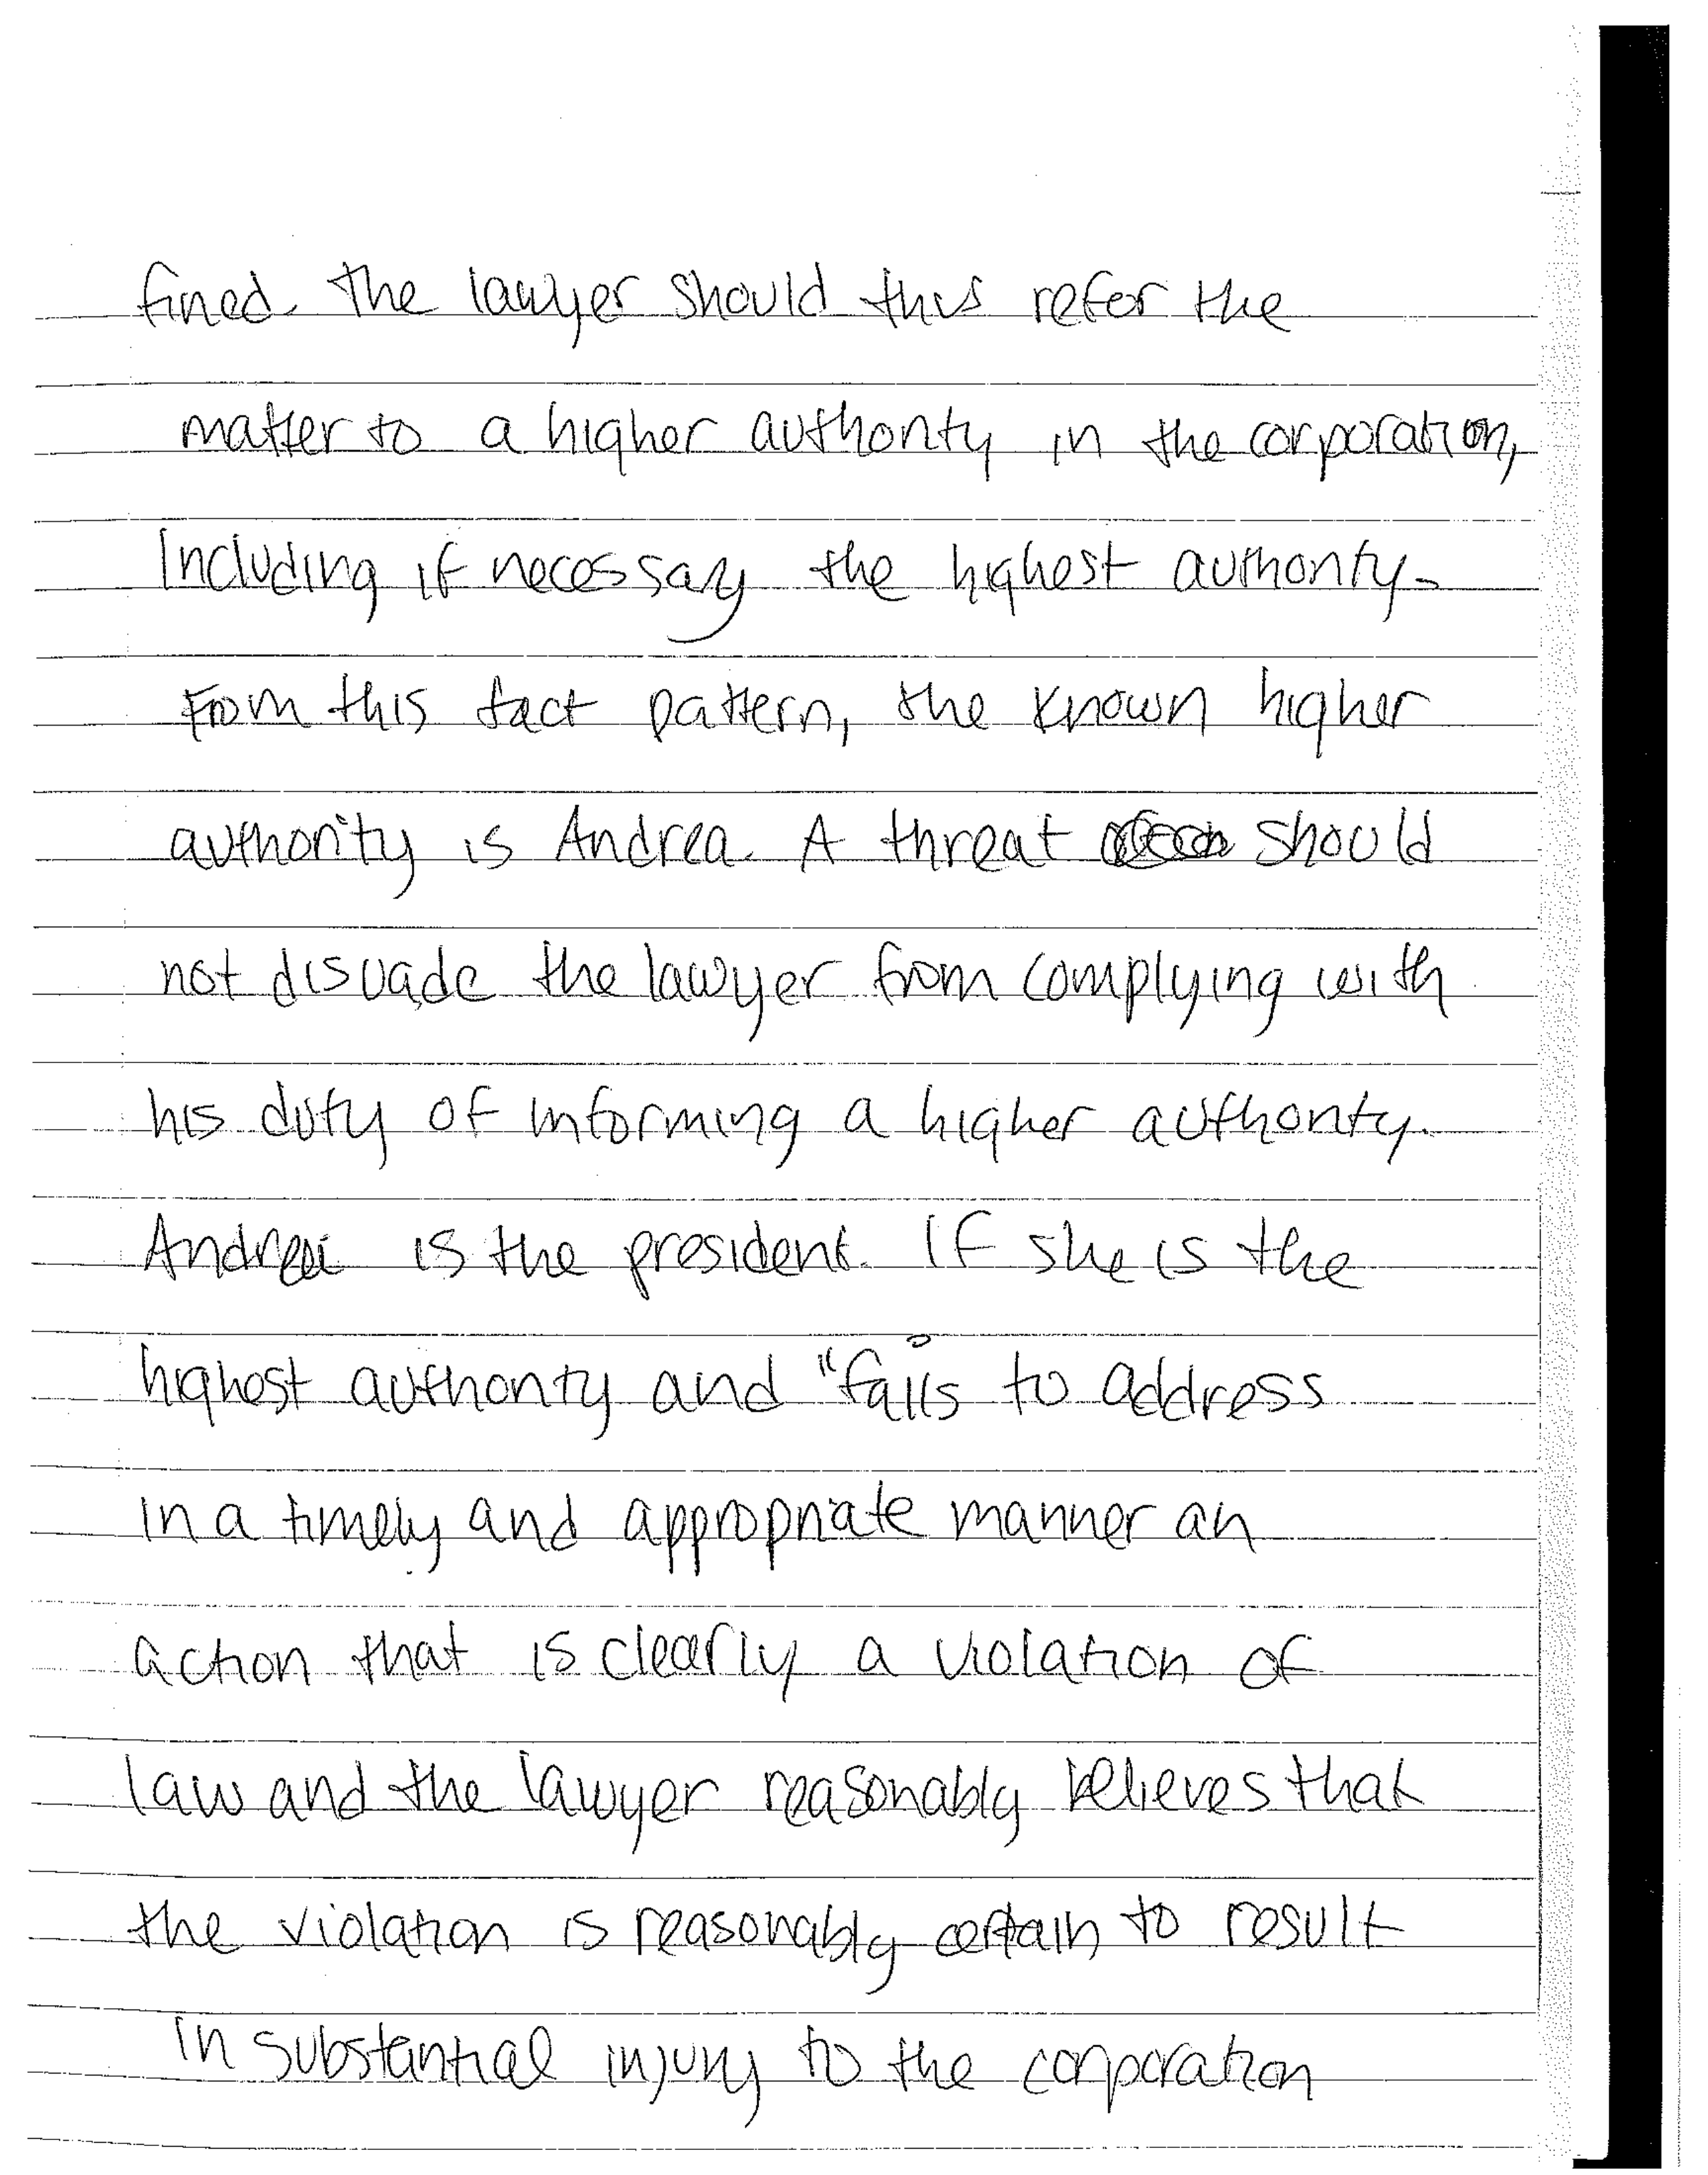 fined. The lawyer should thus refer the
matter to a higher authority in the corporation,
Including if necessary the highest authority.
From this fact pattern, the known higher
authority is Andrea. A threat should
not disuade the lawyer from complying with
his duty of informing a higher authority.
Andrea is the president. If she is the
highest authority and "fails to address
in a timely and appropriate manner an
action that is clearly a violation of
law and the lawyer reasonably believes that
the violation is reasonably certain to result
in substantial injury to the corporation